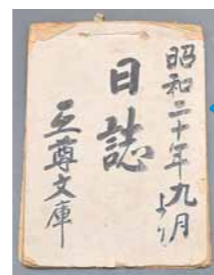 昭和二十年九月より
日誌
互尊文庫